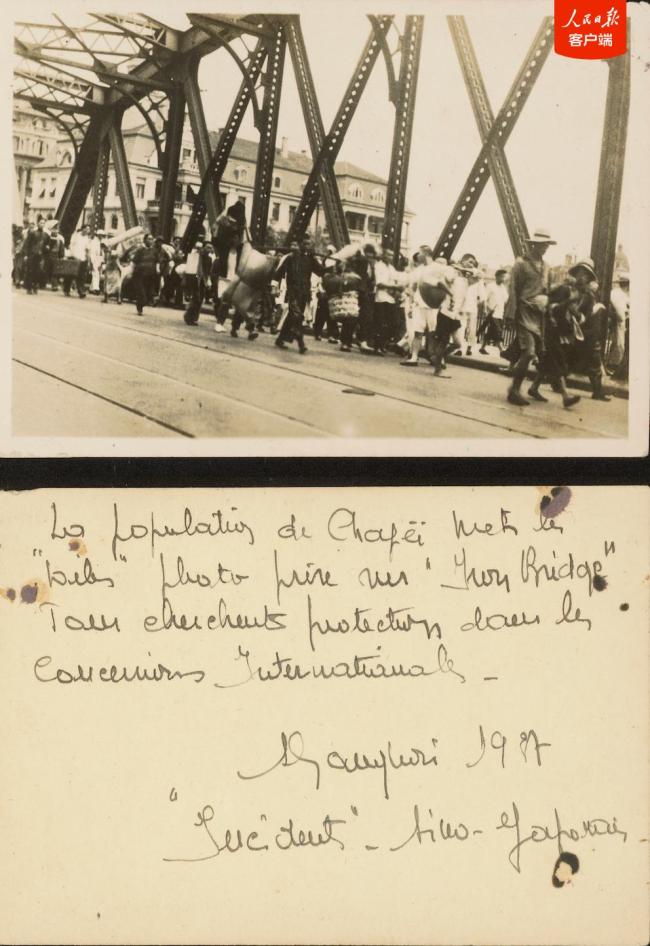 人民日报
客户端
La population de Chapeï mets les
"voiles" photo prise sur "Iron Bridge"
Tous cherchent protection dans les
Concessions Internationales -
Shanghaï 1937
"Incident" - Sino-Japonais